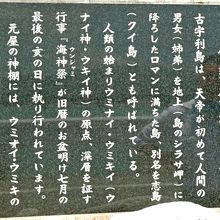 古宇利島は、天帝が初めて人間の
男女(姉弟)を地上(島のシラサ岬)に
降ろしたロマンに満ちた島 別名を恋島
(クイ島)とも呼ばれている。
人類の始まりウミナイ・ウミキイ(ウ
ナイ神・ウキイ神)の原点 深層を証す
行事『海神祭』が旧暦のお盆明け七月の
ウンジャミ
最後の亥の日に執り行われています。
元屋の神棚には、ウミオイウミキの